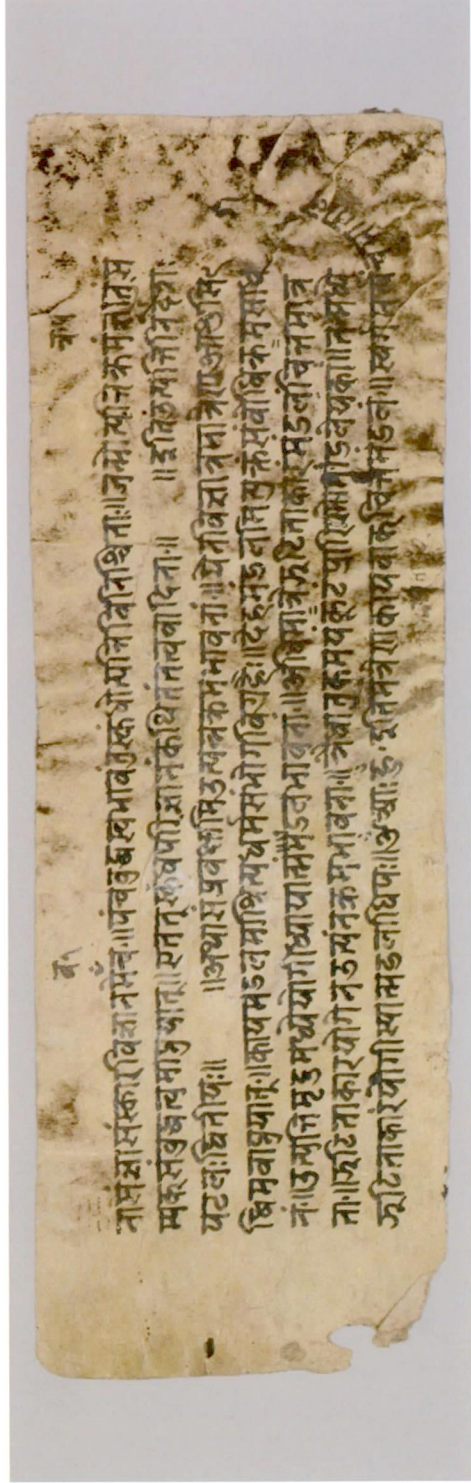 नासंज्ञासंस्कारविज्ञानमेवच॥पंचबुद्धस्वभावंतुस्कंधोत्पत्तिविनिश्चिताः॥जन्मोत्पत्तिक्रमंज्ञानंस
म्यक्संबुद्धत्वमाप्नुयात्॥एतत्स्कंधपरिज्ञानंकथितंतत्त्ववादिना॥ ॥इतिउत्पत्तिनिर्देशः
पटलःद्वितीयः॥ ॥अथातःसंप्रवक्ष्यामिउत्पन्नक्रमभावनां॥येनविज्ञातमात्रेणआशुसि
द्धिमवाप्नुयात्॥कायमंडलमाश्रित्यधर्मसंभोगविग्रहैः॥देहमंडलमित्युक्तंसंबोधिक्रमसाध
नं॥उत्पत्तिमृदुमध्येयोगीध्यायात्मंडलभावना॥अधिमात्रेझटिताकारंमंडलंचित्तमात्र
ता॥झटिताकारयोगेनउत्पन्नक्रमभावना॥त्रैधातुकमयकूटा तन्मध्ये
झटिताकारंयोगीस्यात्मंडलाधिपः॥ॐआःहुं·इतिमंत्रेणकायवाक्चित्तमंडलं॥स्वर्गमर्त्य